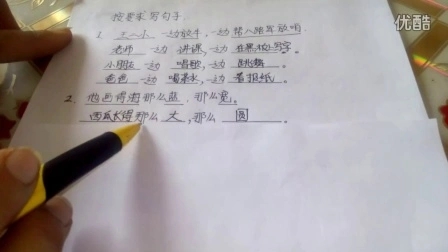 优酷
按要求写句子
1. 王二小一边放牛,一边帮八路军放哨
老师一边讲课,一边在黑板写字
小朋友一边唱歌,一边跳舞
爸爸一边喝茶水,一边看报纸
2. 他画得湖那么蓝,那么宽。
西瓜长得那么大,那么圆。